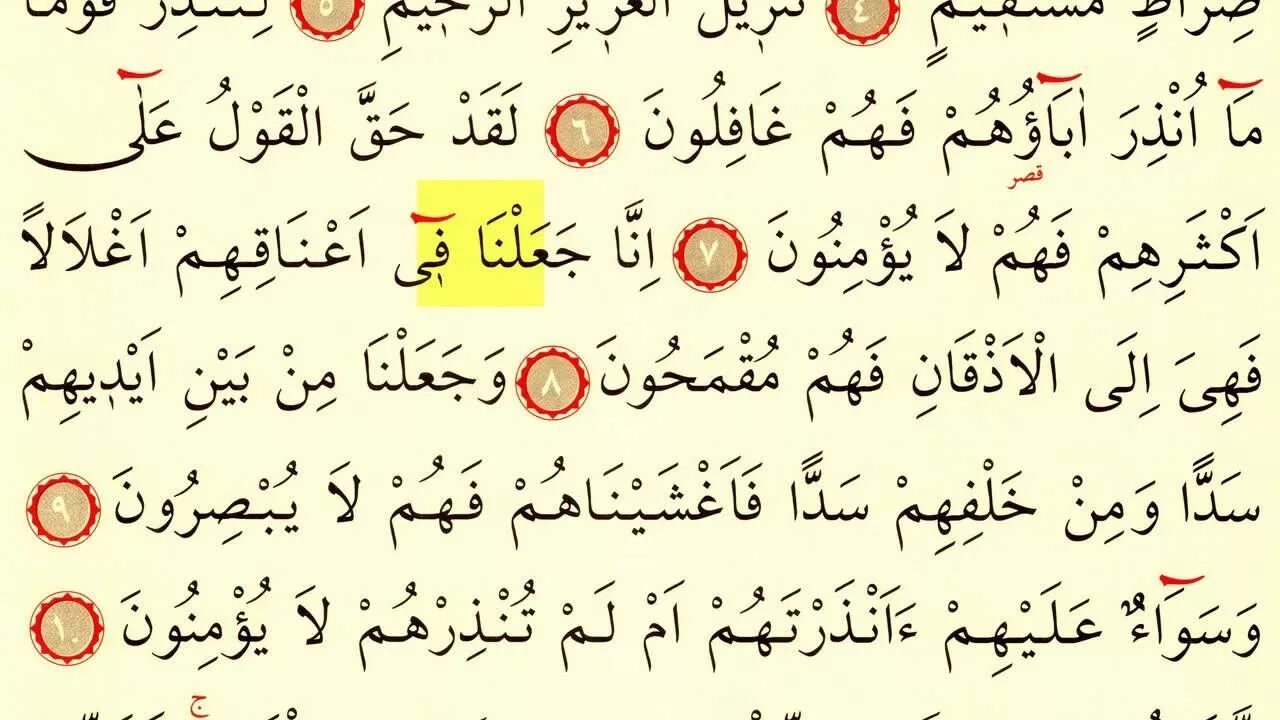 صِرَاطٍ مُسْتَقٖيمٍ ٤ تَنْزٖيلَ الْعَزٖيزِ الرَّحٖيمِ ٥ لِتُنْذِرَ قَوْمًا
مَٓا اُنْذِرَ اٰبَٓاؤُهُمْ فَهُمْ غَافِلُونَ ٦ لَقَدْ حَقَّ الْقَوْلُ عَلٰٓى
قصر
اَكْثَرِهِمْ فَهُمْ لَا يُؤْمِنُونَ ٧ اِنَّا جَعَلْنَا فٖٓى اَعْنَاقِهِمْ اَغْلَالًا
فَهِىَ اِلَى الْاَذْقَانِ فَهُمْ مُقْمَحُونَ ٨ وَجَعَلْنَا مِنْ بَيْنِ اَيْدٖيهِمْ
سَدًّا وَمِنْ خَلْفِهِمْ سَدًّا فَاَغْشَيْنَاهُمْ فَهُمْ لَا يُبْصِرُونَ ٩
وَسَوَٓاءٌ عَلَيْهِمْ ءَاَنْذَرْتَهُمْ اَمْ لَمْ تُنْذِرْهُمْ لَا يُؤْمِنُونَ ١٠
ج